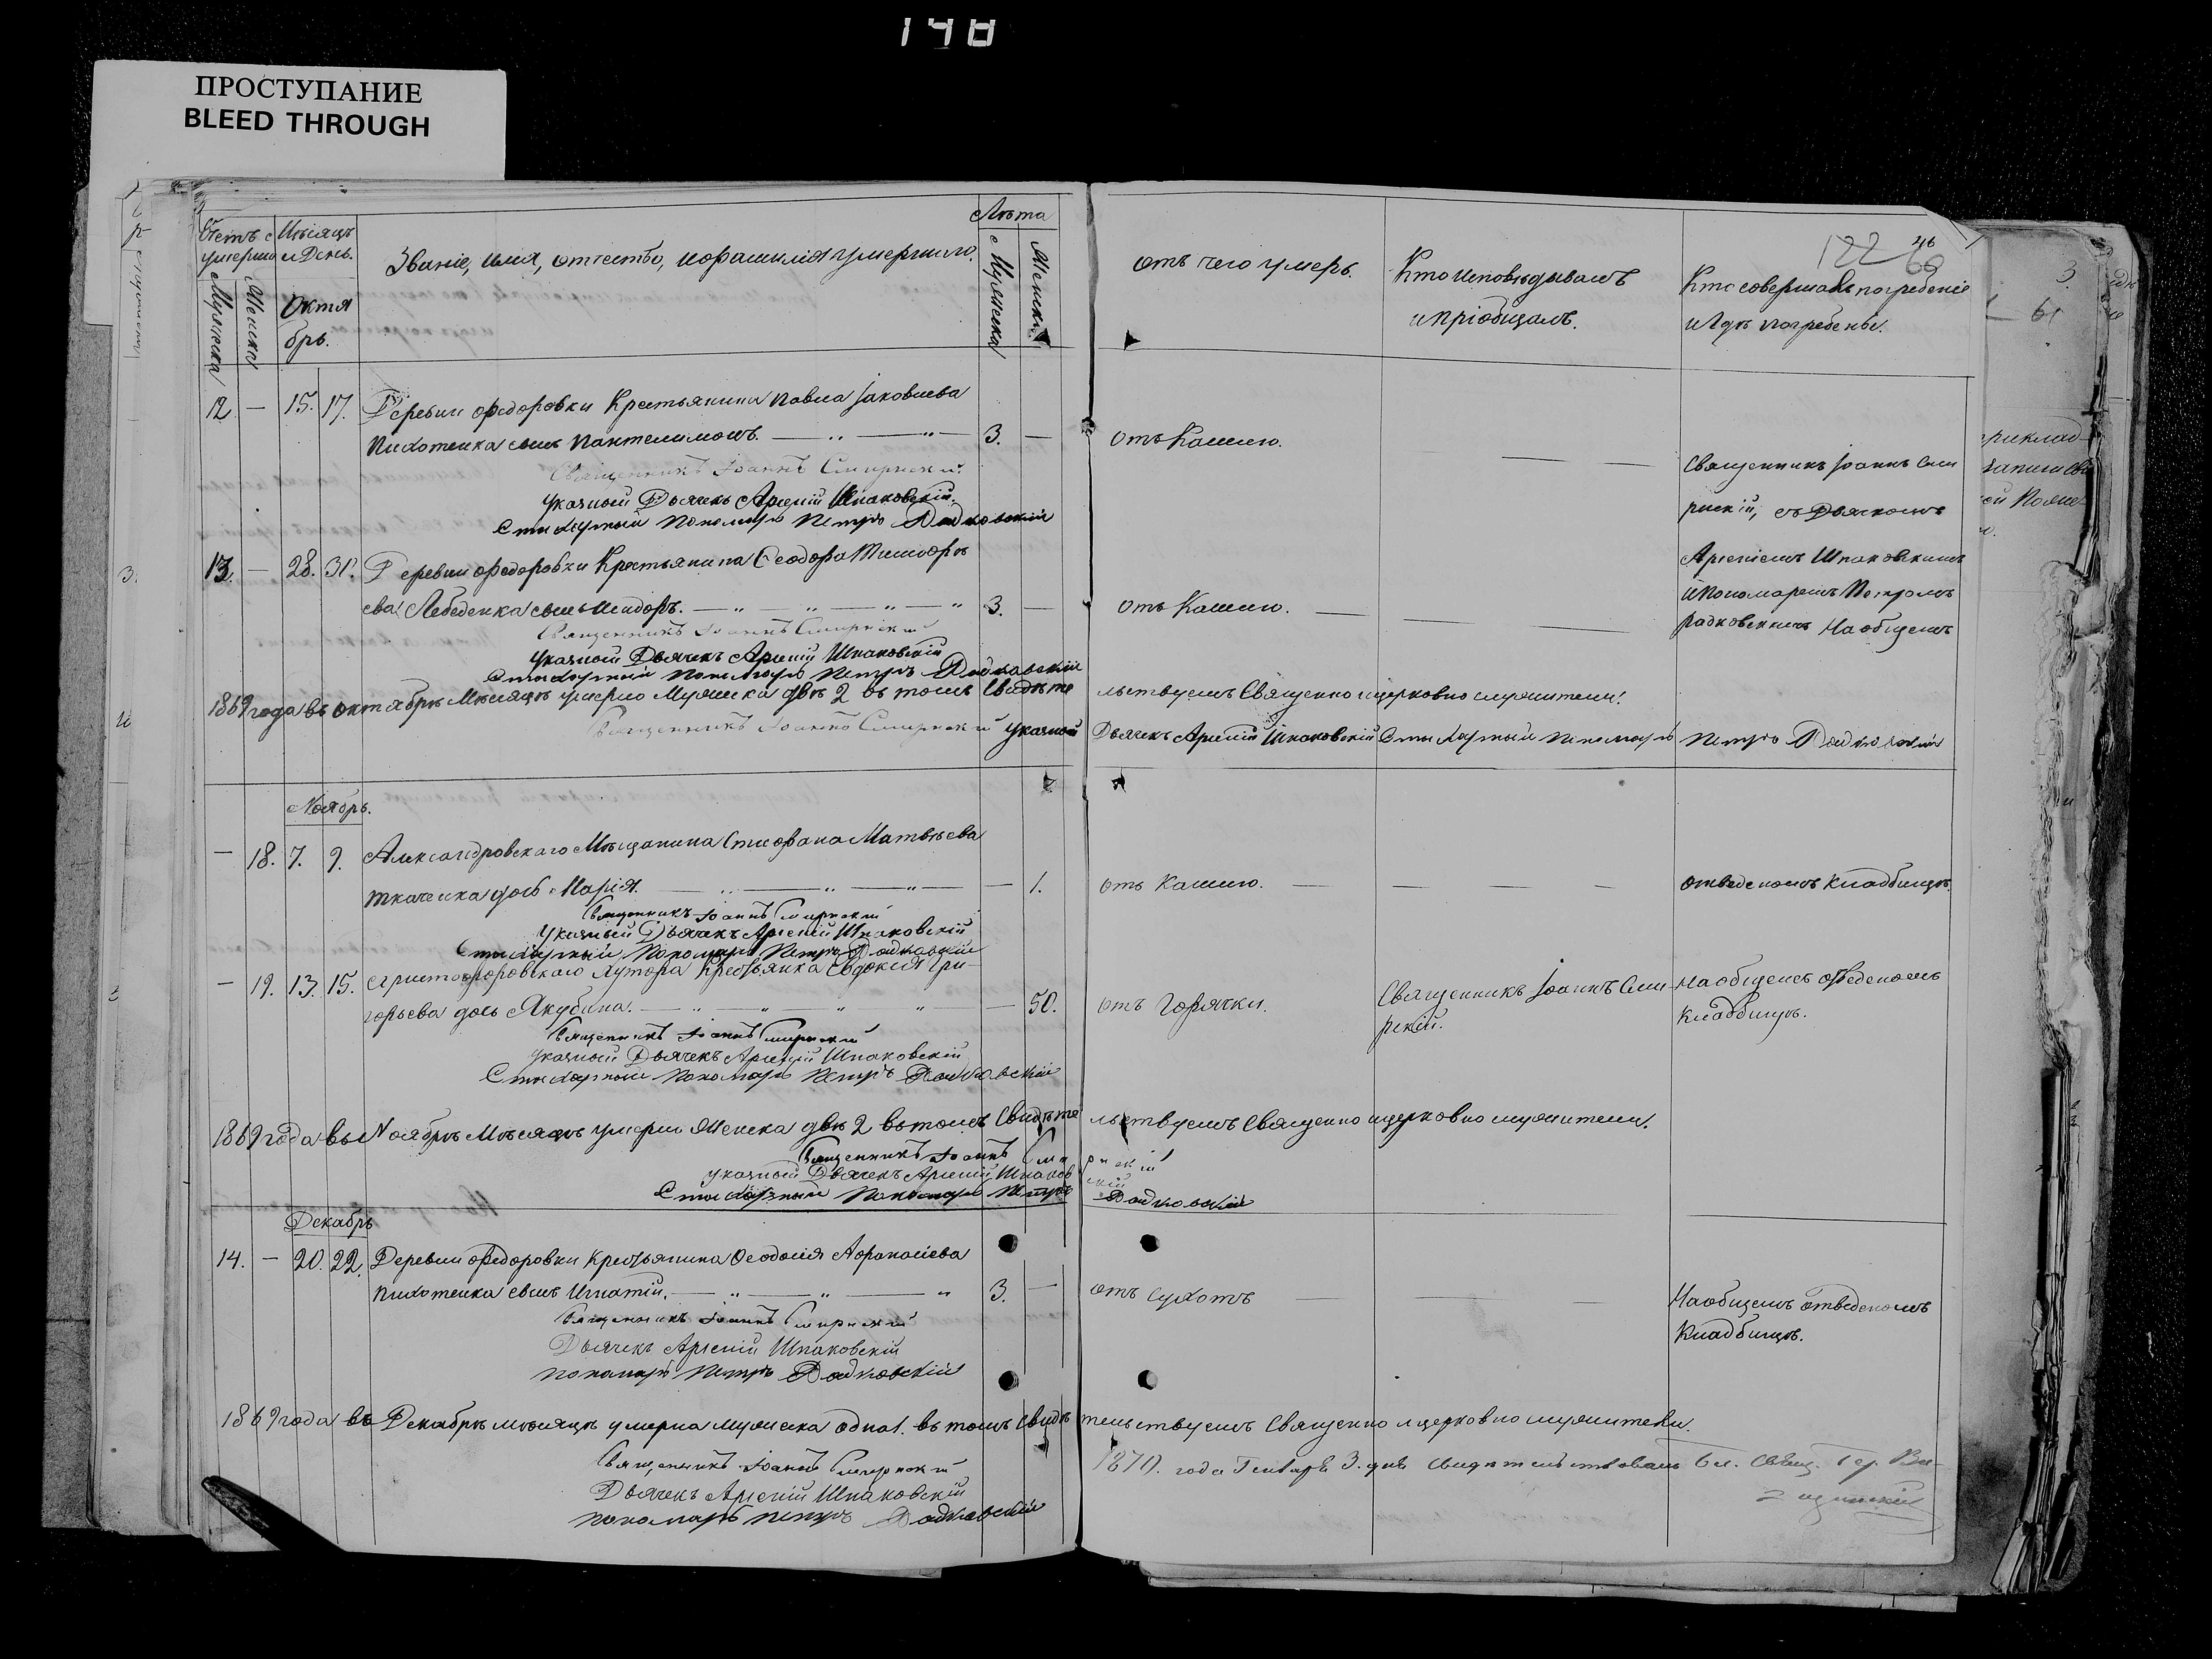 148
ПРОСТУПАНИЕ
BLEED THROUGH
122 46
60
Счетъ умерши
Мѣсяцъ и День.
Октя
брь.
Мужеска
Женска
Званіе, имя, отчество, и фамилія умершаго.
Лѣта
Мужеска
Женска
Отъ чего умеръ.
Кто исповѣдывалъ
и пріобщалъ.
Кто совершалъ погребеніе
и гдѣ погребены.
12. — 15. 17. Деревни Федоровки Крестьянина Павла Іаковлева
Пихотенка сынъ Пантелимонъ. 3. — отъ Кашлю.
Священникъ Іоаннъ Смирнскій
Указный Дьячекъ Арсеній Шпаковскій.
Стихарный Пономарь Петръ Радковскій
Священникъ Іоаннъ Сми
рнскій, съ Дьячкомъ
Арсеніемъ Шпаковскимъ
и Пономаремъ Петромъ
Радковскимъ На общемъ
13. — 28. 31. Деревни Федоровки Крестьянина Феодора Тимофѣ
ева Лебеденка сынъ Исидоръ. 3. — отъ Кашлю.
Священникъ Іоаннъ Смирнскій
Указный Дьячекъ Арсеній Шпаковскій
Стихарный Пономарь Петръ Радковскій
1869 года въ октябрѣ Мѣсяцѣ умерло Мужеска двѣ 2 въ томъ Свидѣте льствуемъ Священно и церковно служители.
Священникъ Іоаннъ Смирнскій Указный Дьячекъ Арсеній Шпаковскій Стихарный Пономарь Петръ Радковскій
Ноябрь.
— 18. 7. 9. Александровскаго Мѣщанина Стефана Матвѣева
Ткаченка дочь Марія. — 1. отъ Кашлю. отведеномъ Кладбищѣ.
Священникъ Іоаннъ Смирнскій
Указный Дьячекъ Арсеній Шпаковскій
Стихарный Пономарь Петръ Радковскій
— 19. 13. 15. Христофоровскаго Хутора Крестьянка Евдокія Гри-
горьева дочь Якубина. — 50. отъ Горячки.
Священникъ Іоаннъ Сми-
рнскій.
На общемъ отведеномъ
Кладбищѣ.
Священникъ Іоаннъ Смирнскій
Указный Дьячекъ Арсеній Шпаковскій
Стихарный Пономарь Петръ Радковскій
1869 года въ Ноябрѣ Мѣсяцѣ умерли Женска двѣ 2 въ томъ Свидѣте льствуемъ Священно и церковно служители.
Священникъ Іоаннъ Сми рнскій
Указный Дьячекъ Арсеній Шпаков скій
Стихарный Пономарь Петръ Радковскій
Декабрь
14. — 20. 22. Деревни Федоровки Крестьянина Феодосія Афанасіева
Пихотенка сынъ Игнатій. 3. — отъ сухотъ
На общемъ отведеномъ
Кладбищѣ.
Священникъ Іоаннъ Смирнскій
Дьячекъ Арсеній Шпаковскій
Пономарь Петръ Радковскій
1869 года въ Декабрѣ мѣсяцѣ умерла мужеска одна 1. въ томъ свидѣ тельствуемъ Священно и церковно служители.
Священникъ Іоаннъ Смирнскій
Дьячекъ Арсеній Шпаковскій
Пономарь Петръ Радковскій
1870. года Генваря 3. дня свидѣтельствовалъ Бл. Свящ.